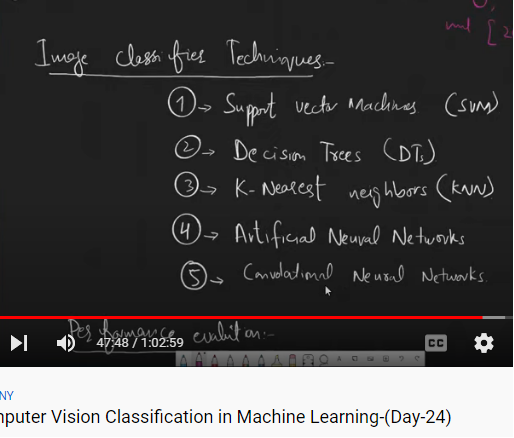 Image classifier Techniques:-
① → Support vector Machines (SVM)
② → Decision Trees (DTs)
③ → K-Nearest neighbors (KNN)
④ → Artificial Neural Networks
⑤ → Convolational Neural Networks.
Performance evalution:-
47:48 / 1:02:59
CC
NY
nputer Vision Classification in Machine Learning-(Day-24)